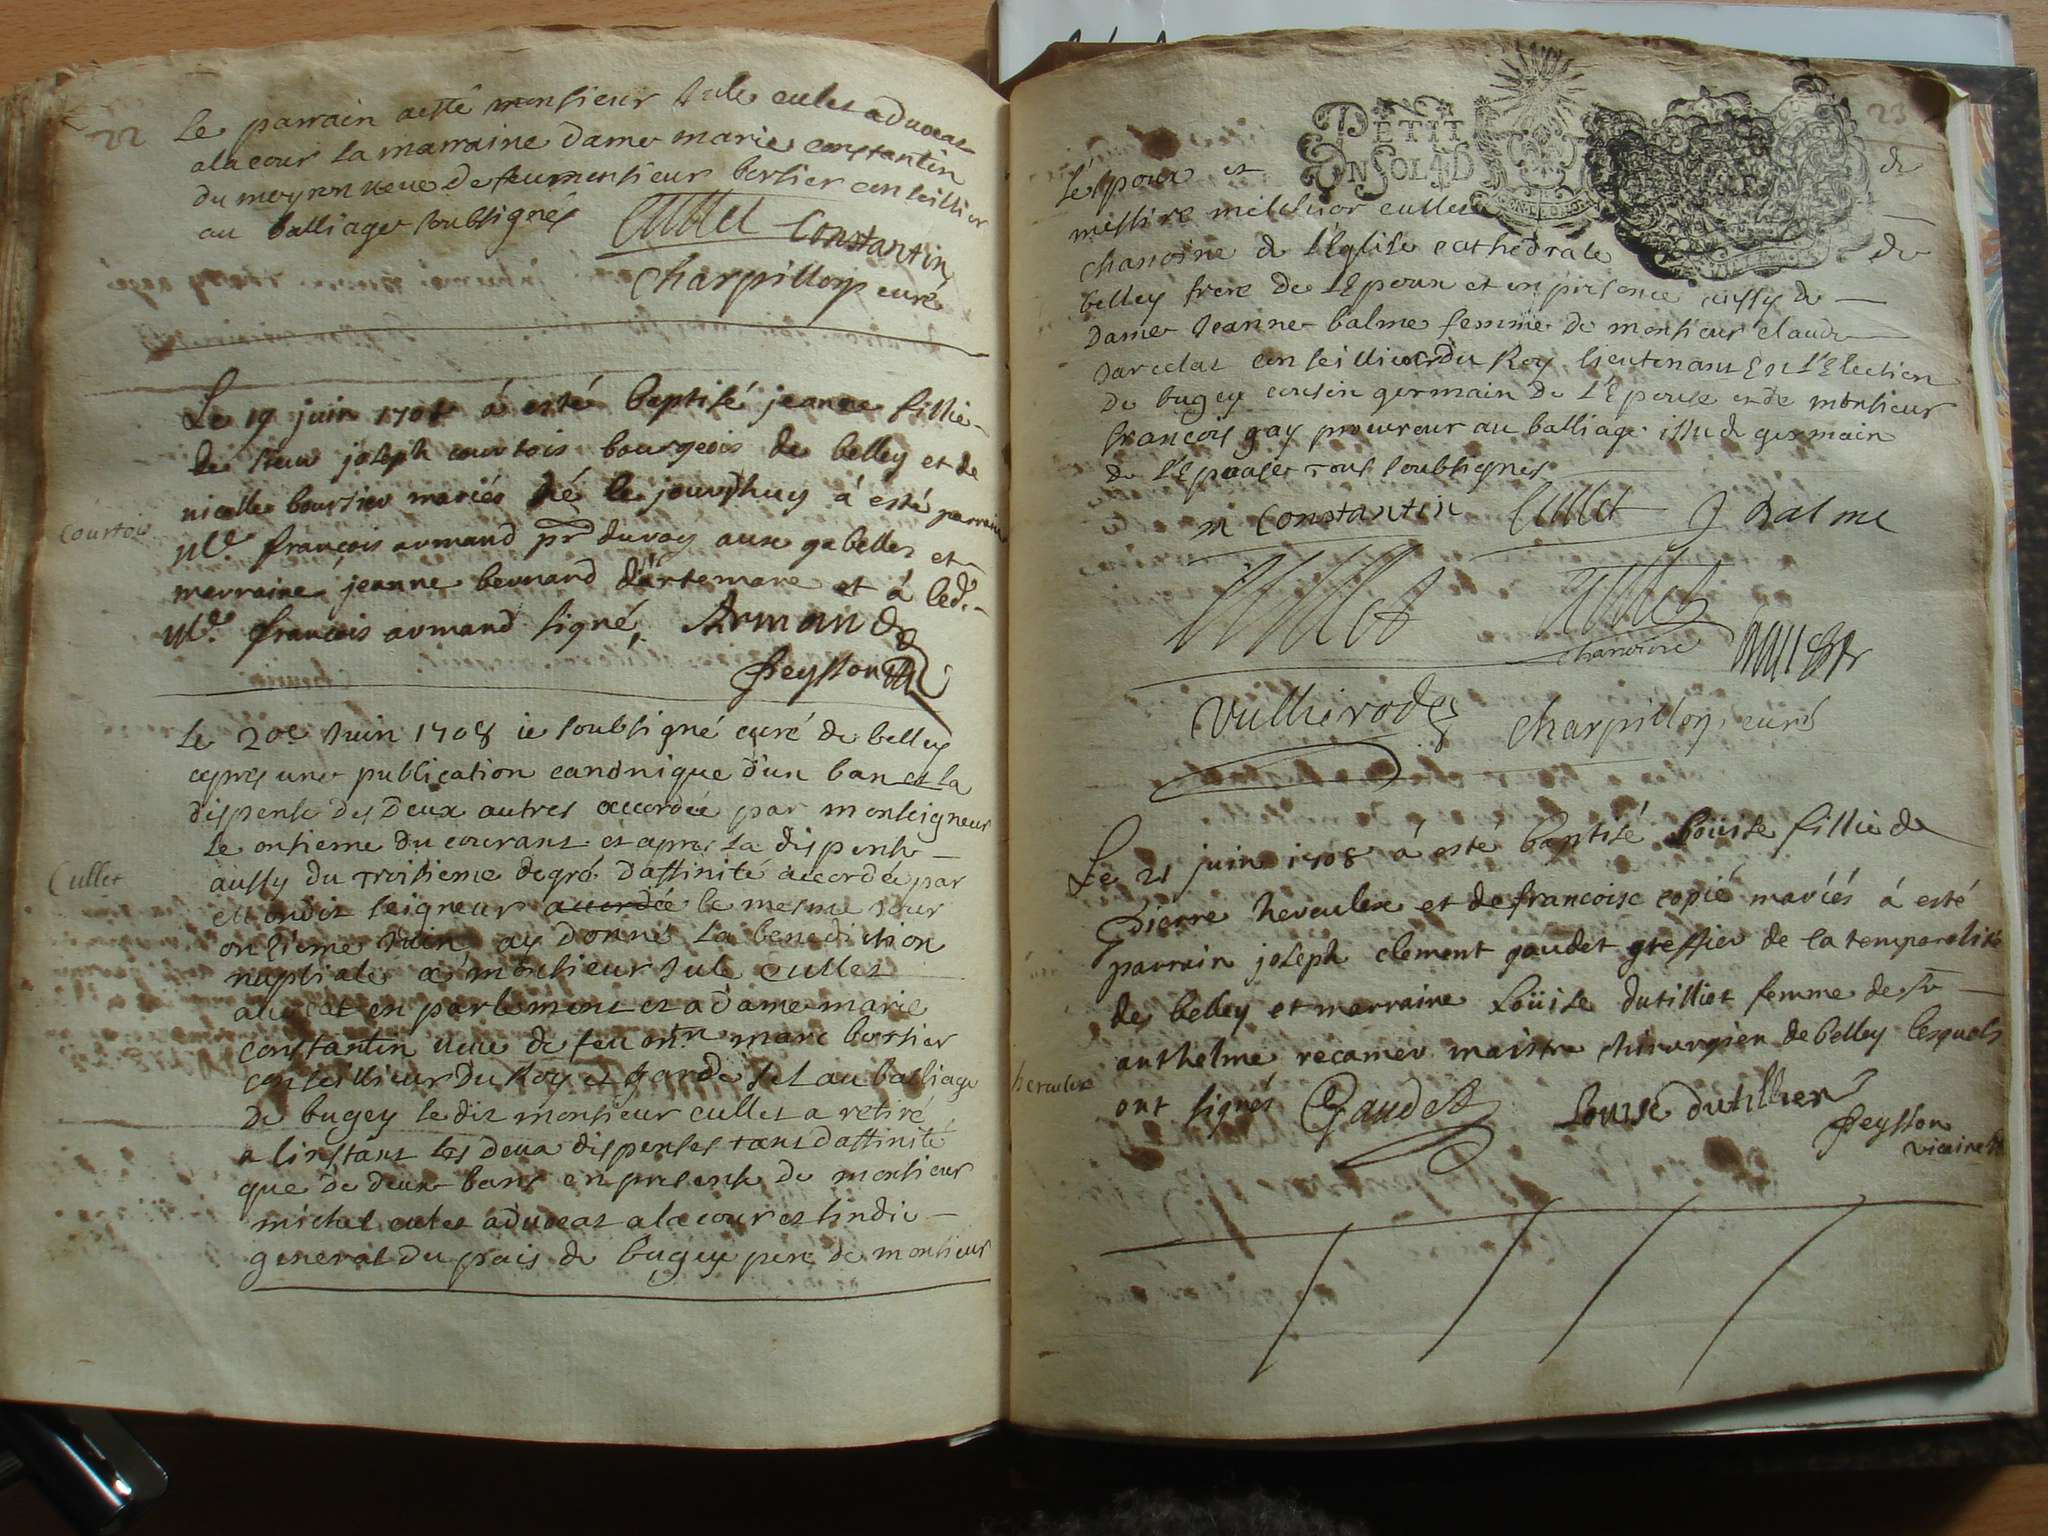 22
Le parrain a esté monsieur Jule cullet advocat
a la cour la marraine dame marie constantin
du moyron veue de feu monsieur bersier conseillier
au balliage soubsignés Cullet Constantin
Charpillon curé
Le 19 juin 1708 á esté baptisé jeanne fillie
de sieur joseph courtois bourgeois de belley et de
nicolle boursier mariés né le jourdhuy á esté parrain
courtois
Mr. françois armand pr duroy aux gabelles et
marraine jeanne bernard d'artemare et á led.
Mr. françois armand signé, Armand
Peysson
Le 20e Juin 1708 ie soubsigné curé de belley
apres une publication canonique d'un ban et la
dispense des Deux autres accordée par monseigneur
le onsieme du courant et apres la dispense
Cullet
aussy du troisieme degré d'affinité accordée par
mondit seigneur accordée le mesme Jour
onsieme Juin ay donné la benediction
nuptiale a monsieur Jule Cullet
advocat en parlement et a dame marie
constantin veue de feu mr. marc bersier
conseillieur du Roy et garde sel au balliage
de bugey le dit monsieur cullet a retiré
a linstant les deux dispenses tant daffinité
que de deux bans en presence de monsieur
michel cullet advocat a la cour et sindic
general du pais de bugey pere de monsieur
23
PETIT
EN SOL 4 D
l'espoux et de
messire melchior cullet
chanoine de l'Eglise cathedrale de
belley frere de l'Epoux et en presence aussy de
dame Jeanne balme femme de monsieur claude
Jarcelat conseillieur du Roy lieutenant En l'Election
de bugey cousin germain de l'Epouse et de monsieur
françois gay procureur au balliage issu de germain
de l'Epouse tous soubsignés
m Constantin Cullet J Balme
Cullet Cullet
chanoine
Vullierod Charpillon curé
Le 21 juin 1708 á esté baptisé Loüise fillie de
pierre herculex et de francoise copié mariés á esté
parrain joseph clement gaudet greffier de la temporalité
de belley et marraine Loüise dutilliet femme de sr
anthelme recamer maistre chirurgien de belley lesquels
herculex
ont signés Gaudet Louise dutillier
Peysson
vicaire